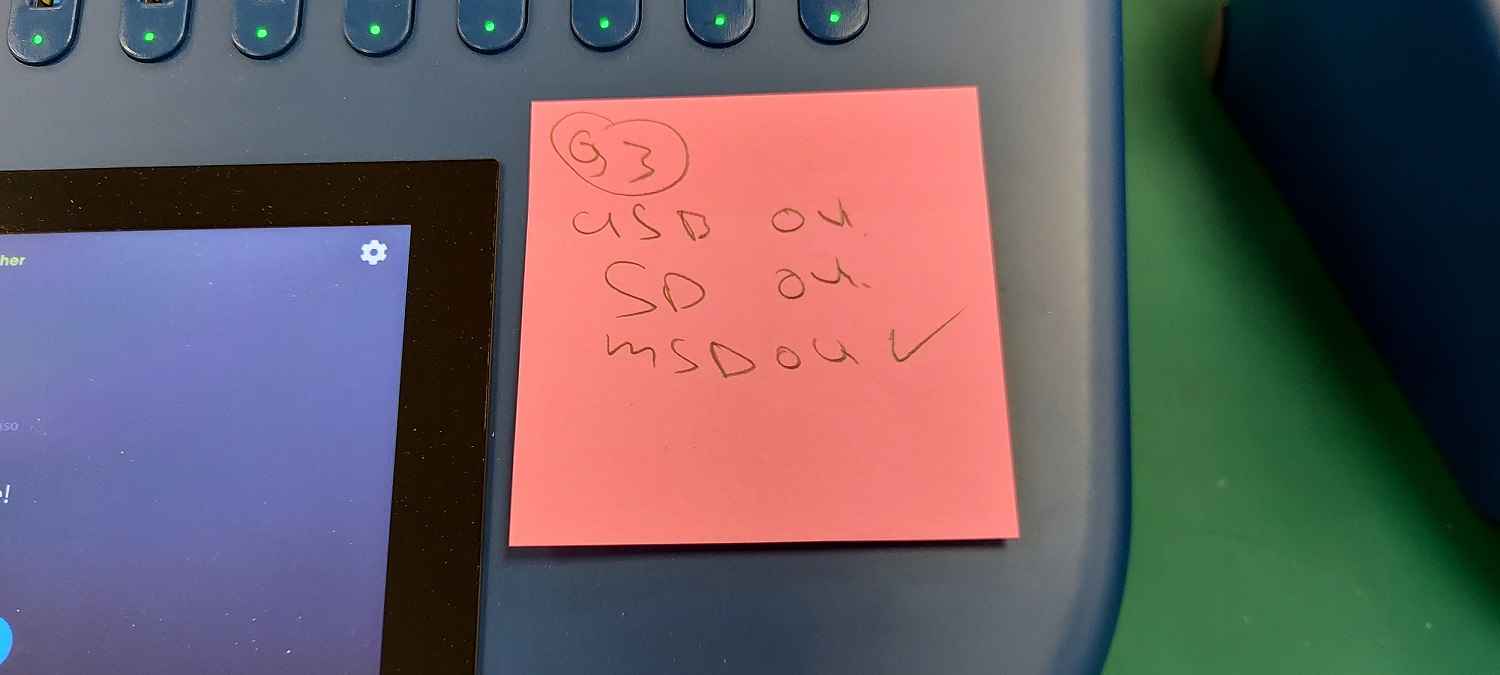 her
uso
e!
93
USB OK.
SD OK.
mSD OK ✓